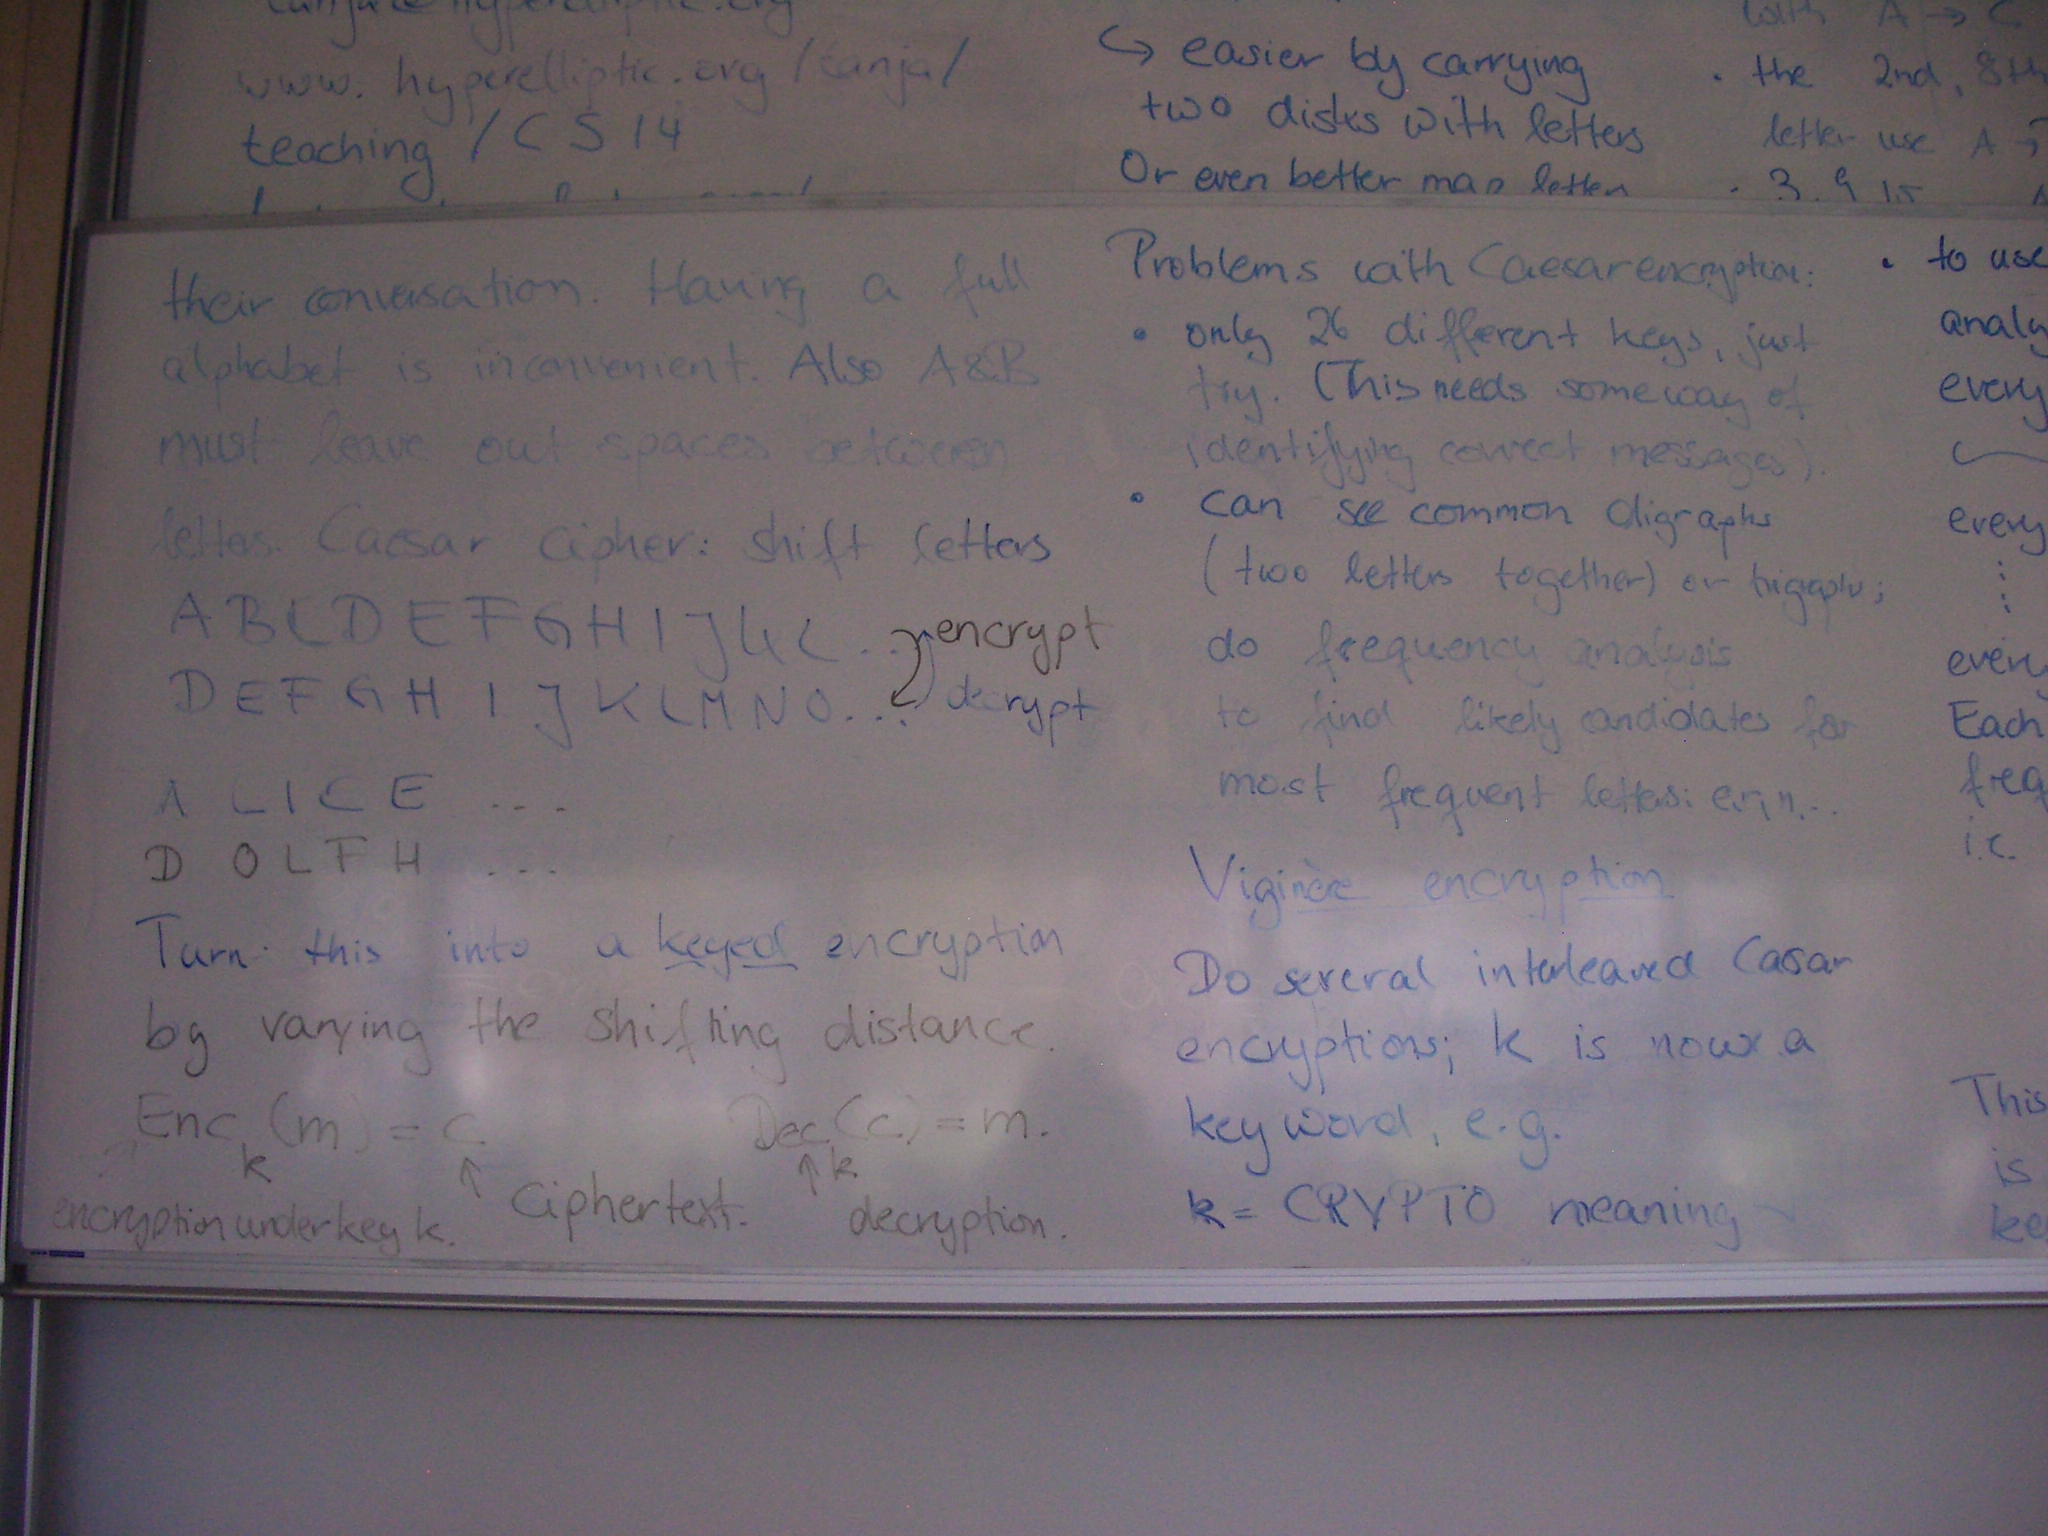 www.hyperelliptic.org/tanja/
teaching/CS14
↪ easier by carrying
two disks with letters
Or even better map letters
with A → C
• the 2nd, 8th
letter use A →
• 3. 9 15
their conversation. Having a full
alphabet is inconvenient. Also A&B
must leave out spaces between
letters. Caesar cipher: shift letters
A B C D E F G H I J K L ... encrypt
D E F G H I J K L M N O ... decrypt
A L I C E ...
D O L F H ...
Turn this into a keyed encryption
by varying the shifting distance.
Enc_k (m) = c Dec_k (c) = m.
encryption under key k. ↑ Ciphertext. ↑ decryption.
Problems with Caesar encryption:
• only 26 different keys, just
try. (This needs some way of
identifying correct messages).
• can see common digraphs
(two letters together) or trigraphs;
do frequency analysis
to find likely candidates for
most frequent letters: e,r,n,..
Viginère encryption
Do several interleaved Casar
encryptions; k is now a
key word, e.g.
k = CRYPTO meaning
• to use
analy
every
every
⋮
every
Each
freq
i.e.
This
is